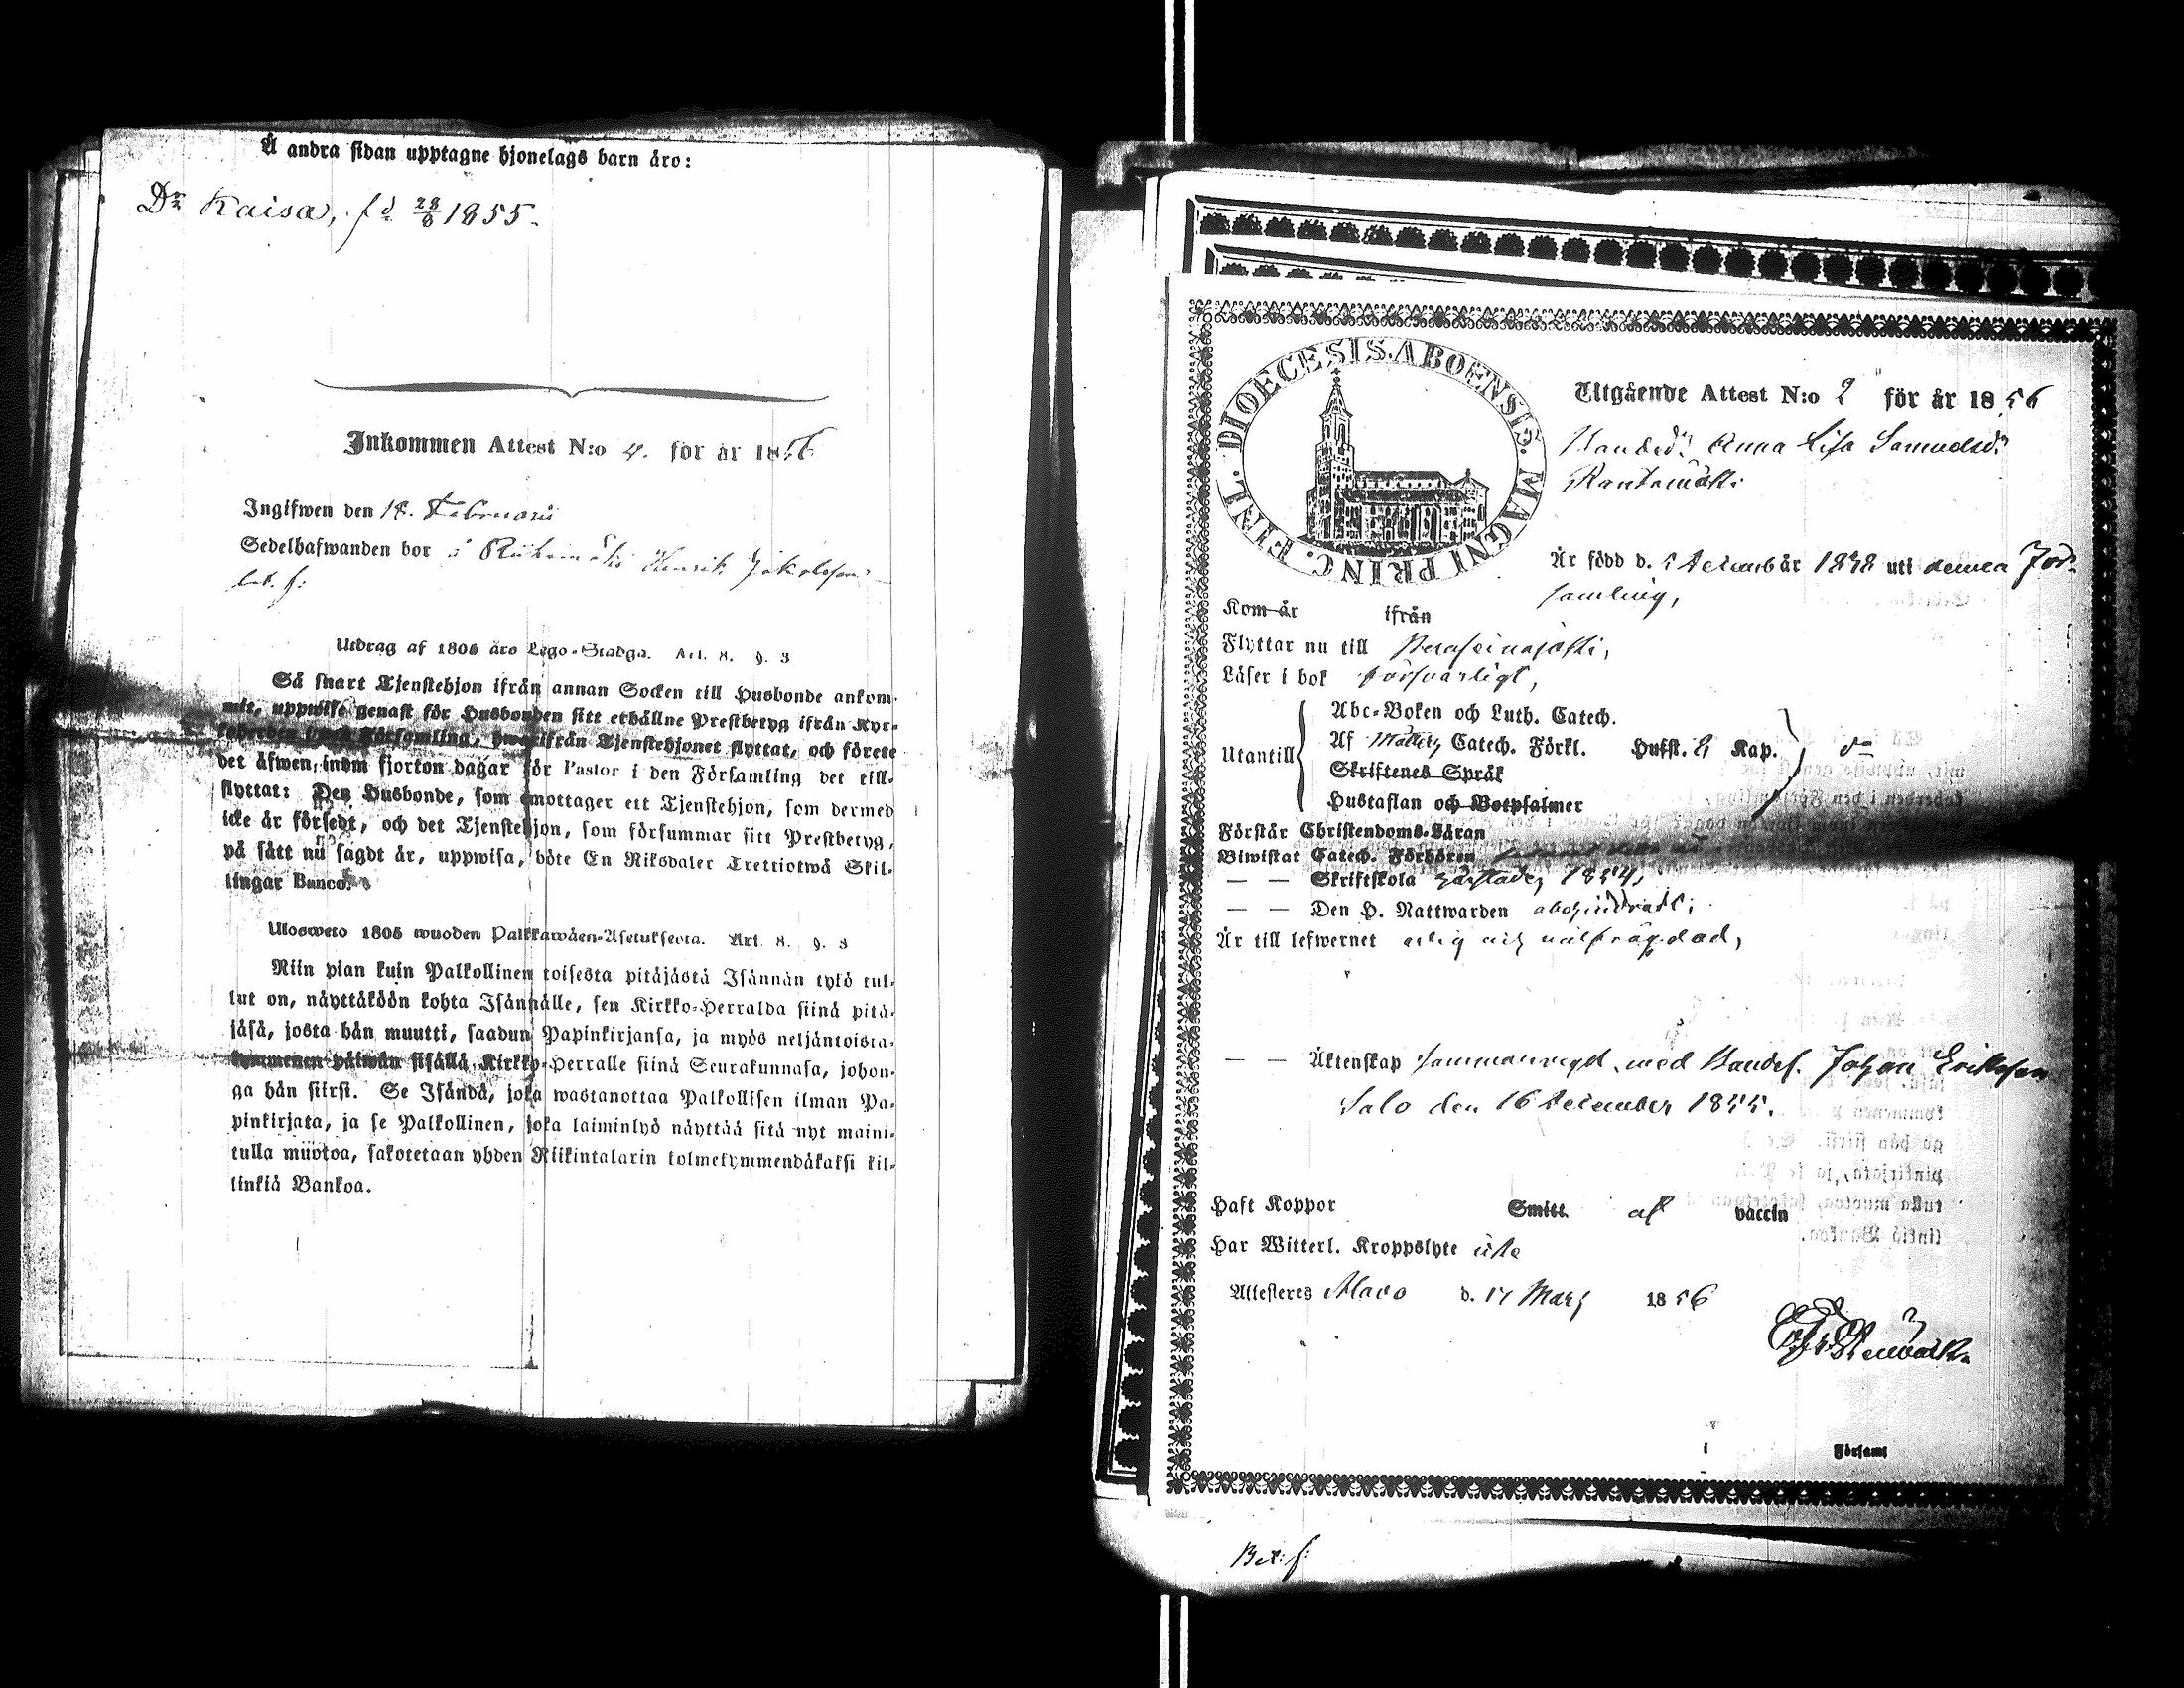 Å andra sidan upptagne hjonelags barn äro:
Dr Kaisa, fd 28/8 1855.
Inkommen Attest N:o 4. för år 1856
Ingifwen den 18. Februarii
Sedelhafwanden bor å Riihimäki Henrik Jakobsson
Utdrag af 1805 års Lego-Stadga. Art. 8. §. 3
Så snart Tjenstehjon ifrån annan Socken till Husbonde ankom-
mit, uppwise genast för Husbonden sitt erhållne Prestbetyg ifrån Kyr-
koherden i den Församling, hwarifrån Tjenstehjonet flyttat, och förete
det äfwen, inom fjorton dagar för Pastor i den Församling det till-
flyttat: Den Husbonde, som emottager ett Tjenstehjon, som dermed
icke är försedt, och det Tjenstehjon, som försummar sitt Prestbetyg,
på sätt nu sagdt är, uppwisa, böte En Riksdaler Trettiotwå Skil-
lingar Banco.
Ulosweto 1805 wuoden Palkkawäen-Asetuksesta. Art. 8. §. 3
Niin pian kuin Palkollinen toisesta pitäjästä Isännän tykö tul-
lut on, näyttäköön kohta Isännälle, sen Kirkko-Herralda siinä pitä-
jäsä, josta hän muutti, saadun Papinkirjansa, ja myös neljäntoista-
kymmenen päiwän sisällä Kirkko-Herralle siinä Seurakunnasa, johon-
ga hän siirsi. Se Isändä, joka wastanottaa Palkollisen ilman Pa-
pinkirjata, ja se Palkollinen, joka laiminlyö näyttää sitä nyt maini-
tulla muotoa, sakotetaan yhden Riikintalarin kolmekymmendäkaksi kil-
linkiä Bankoa.
FINL. DIOECESIS. ABOENSIS. MAGNI PRINC.
Utgående Attest N:o 2 för år 1856
Anna Lisa Samuelsdr
Är född d. 5 December 1838 uti denna För-
samling,
Kom år ifrån
Flyttar nu till Peräseinäjoki,
Läser i bok försvarligt,
Utantill
Abc-Boken och Luth. Catech.
Af Möllers Catech. Förkl. Hufst. & Kap. do
Skriftenes Språk
Hustaflan och Botpsalmer
Förstår Christendoms-Läran
Biwistat Catech. Förhören
— — Skriftskola 1854,
— — Den H. Nattwarden
Är till lefwernet ärlig och välfrägdad,
— — Äktenskap sammanvigd med Johan Eriksson
Salo den 16 December 1855.
Haft Koppor Smitt. af vaccin
Har Witterl. Kroppslyte icke
Attesteres Alavo d. 17 Mars 1856
Församl
Bet. f: